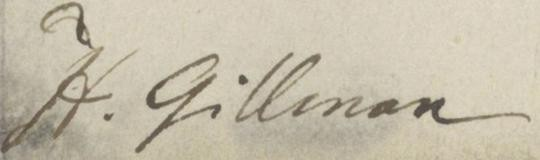 H. Gillman